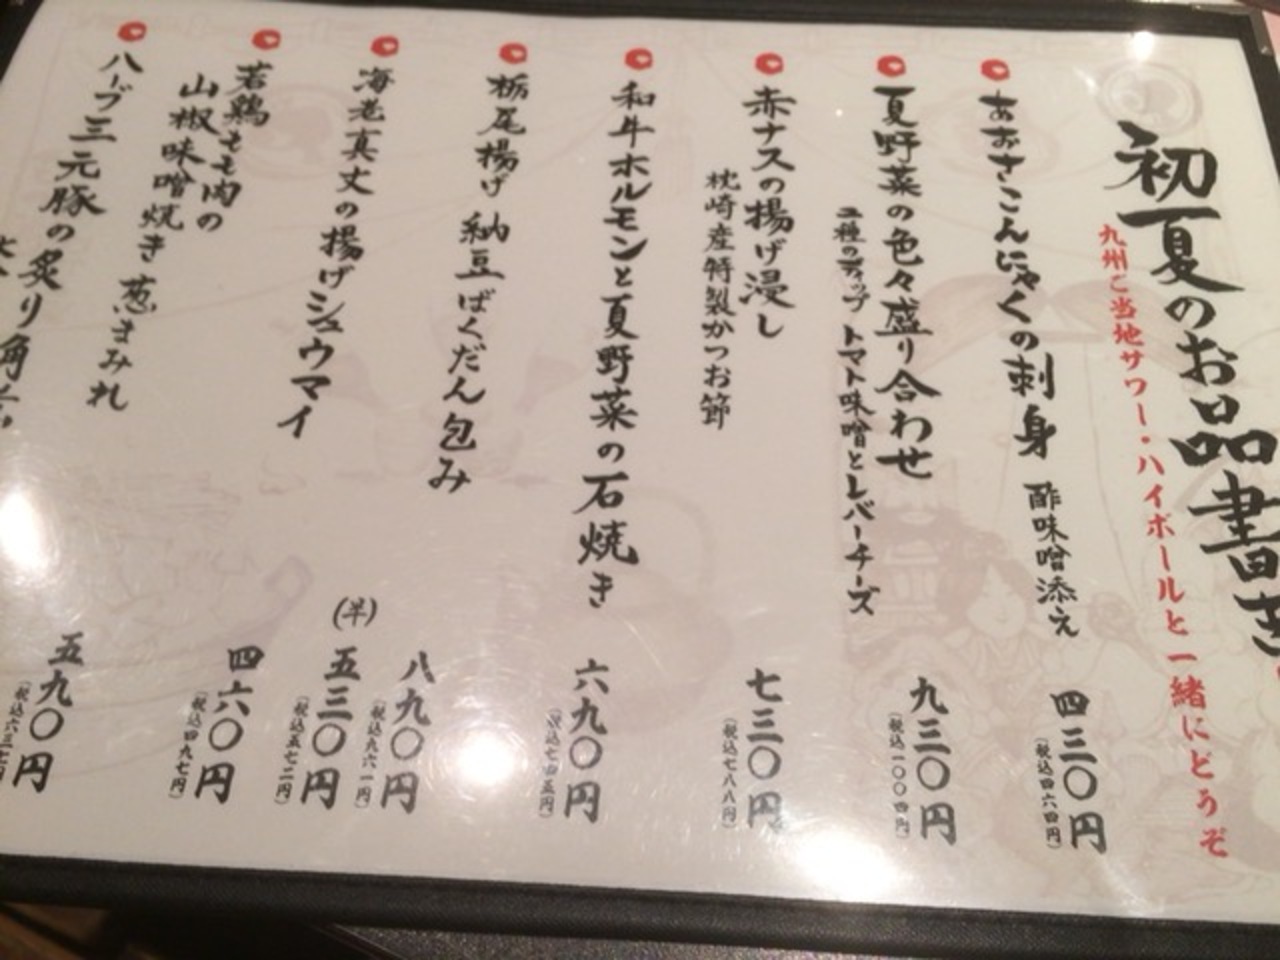 初夏のお品書き
九州ご当地サワー・ハイボールと一緒にどうぞ
あおさこんにゃくの刺身 酢味噌添え 四三〇円
(税込四六四円)
夏野菜の色々盛り合わせ 九三〇円
二種のディップ トマト味噌とレバーチーズ (税込一〇〇四円)
赤ナスの揚げ浸し 七三〇円
枕崎産特製かつお節 (税込七八八円)
和牛ホルモンと夏野菜の石焼き 六九〇円
(税込七四五円)
栃尾揚げ 納豆ばくだん包み 八九〇円
(税込九六一円)
(半) 五三〇円
(税込五七二円)
海老真丈の揚げシュウマイ 四六〇円
(税込四九七円)
若鶏もも肉の
山椒味噌焼き 葱まみれ 五九〇円
(税込六三七円)
ハーブ三元豚の炙り角煮